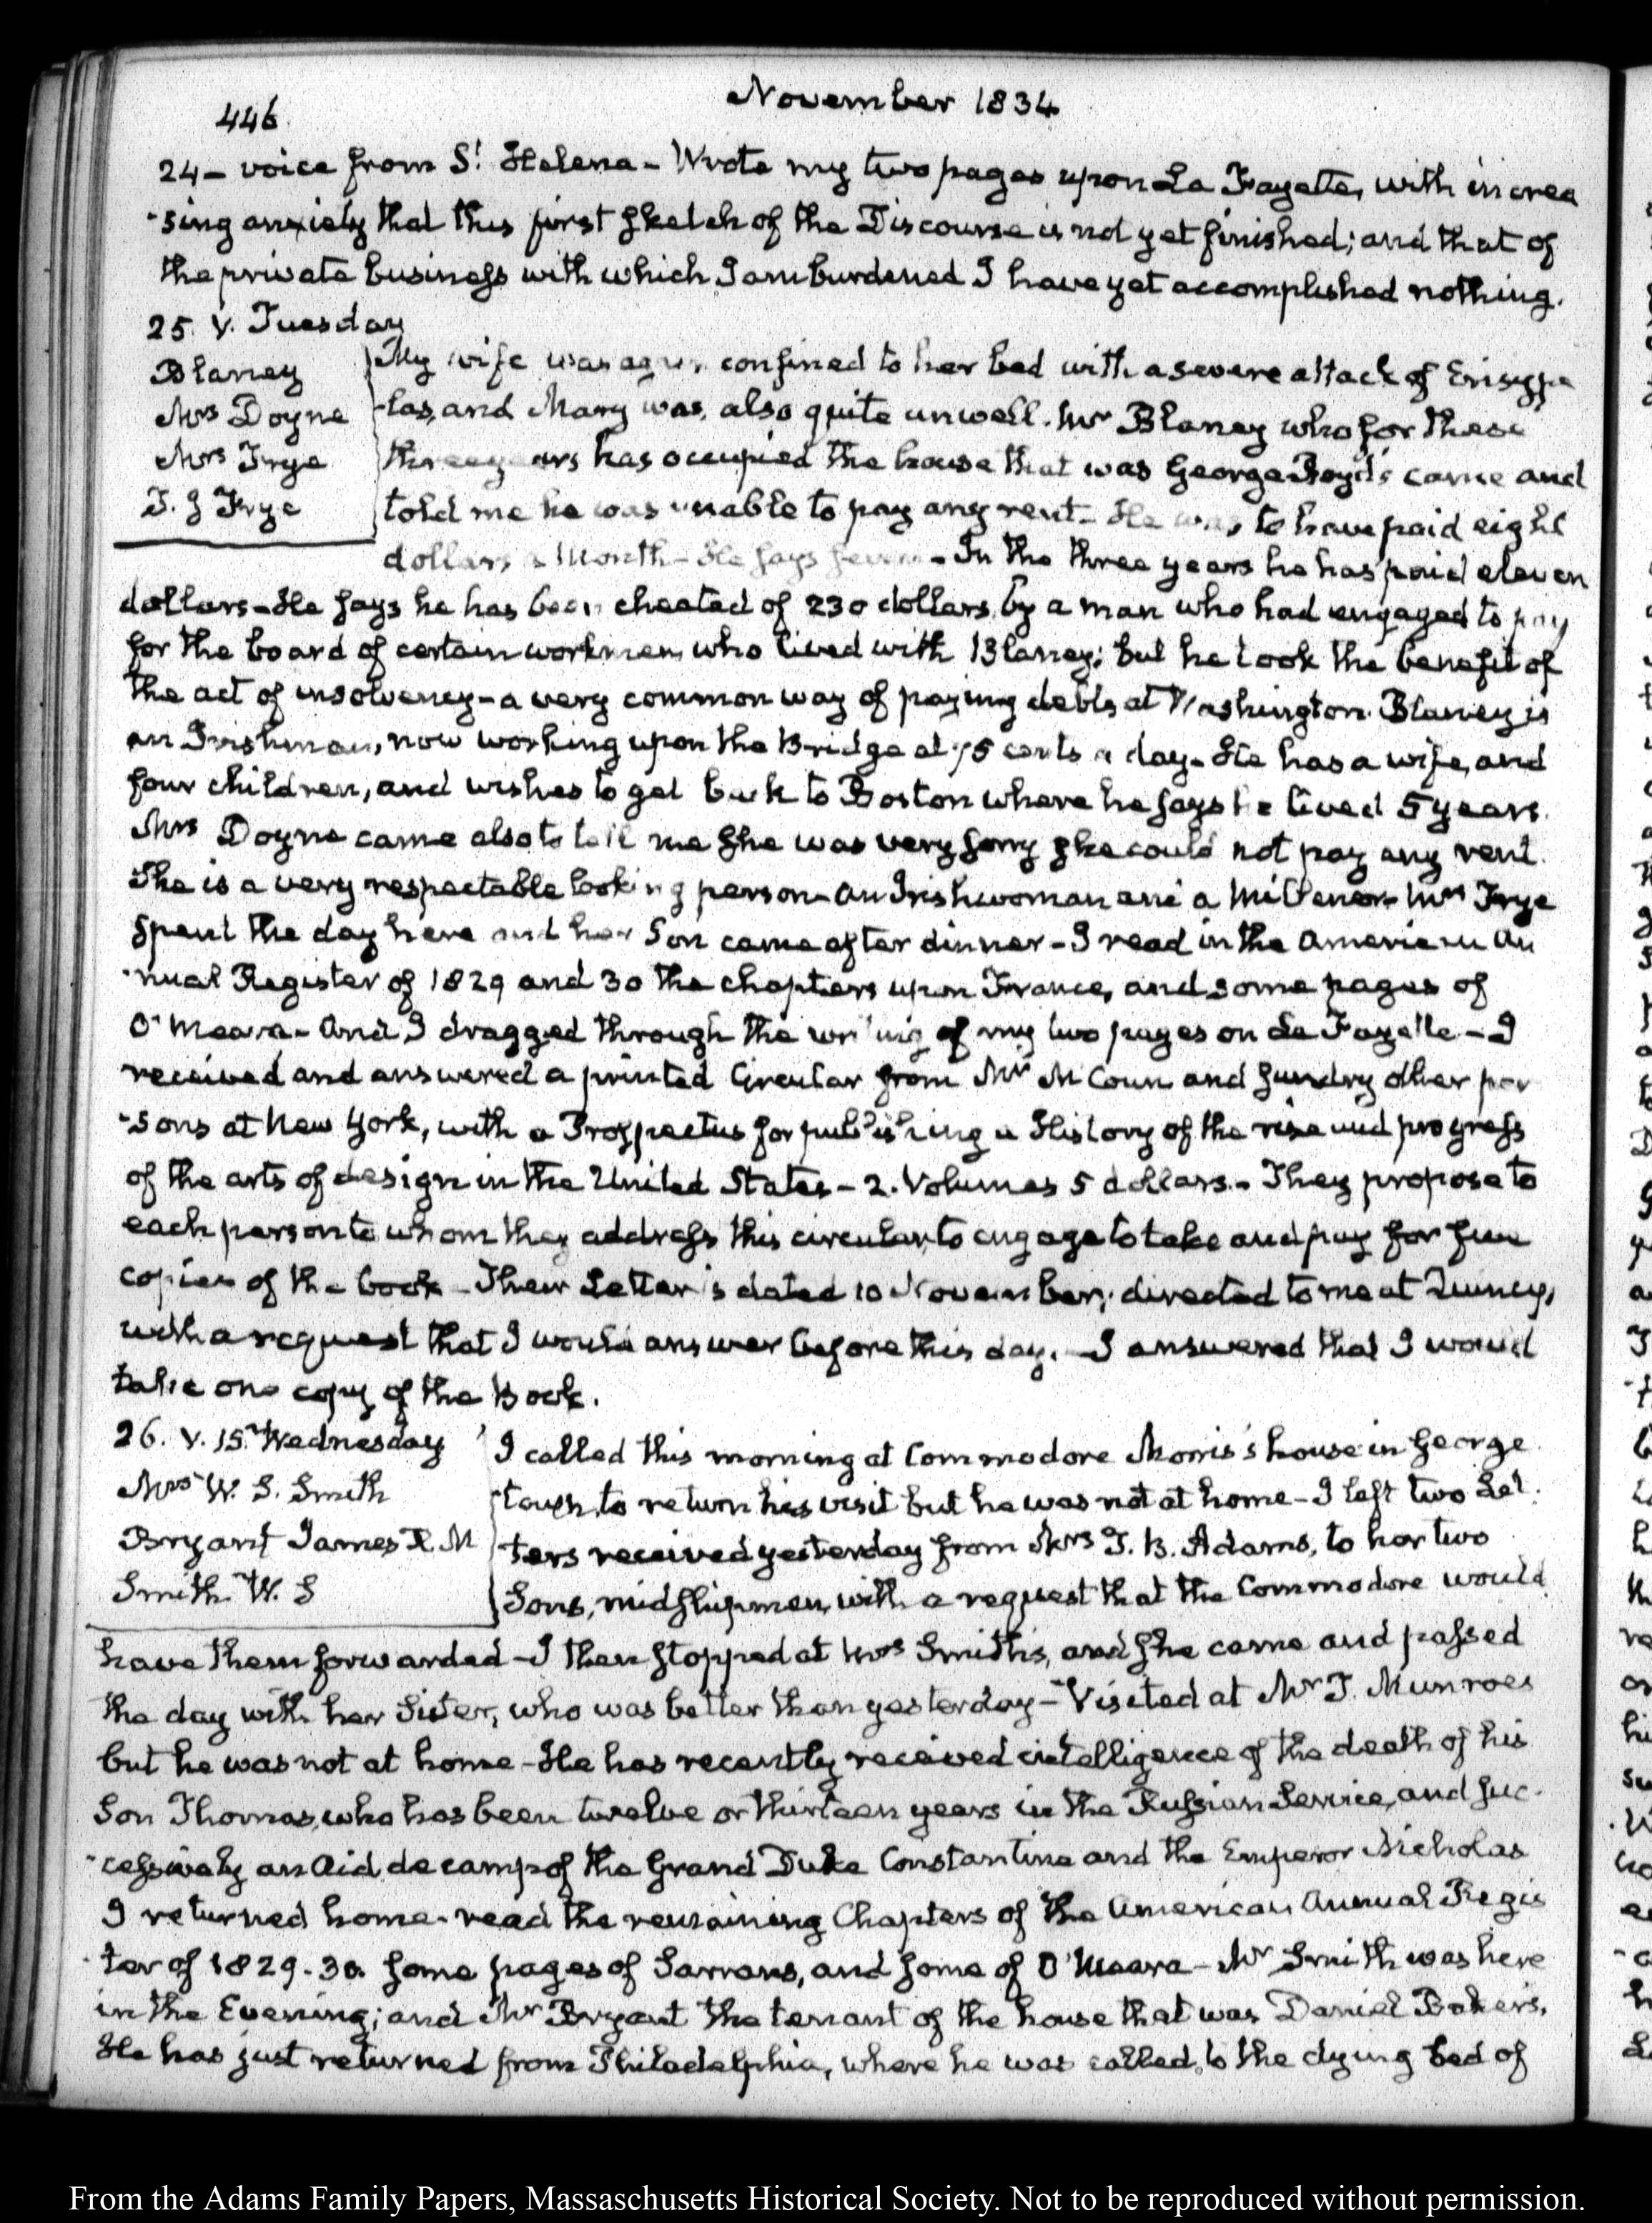 446.
November 1834
24 – voice from St Helena – Wrote my two pages upon La Fayette, with increa
-sing anxiety that this first sketch of the Discourse is not yet finished; and that of
the private business with which I am burdened I have yet accomplished nothing.
25. V. Tuesday
Blaney
Mrs Doyne
Mrs Frye
T. J Frye
My wife was again confined to her bed with a severe attack of Erisype
-las, and Mary was, also quite unwell. Mr Blaney who for these
three years has occupied the house that was George Boyd's came and
told me he was unable to pay any rent – He was, to have paid eight
dollars a Month – He says seven – In the three years he has paid eleven
dollars – He says he has been cheated of 230 dollars by a man who had engaged to pay
for the board of certain workmen who lived with Blaney; but he took the benefit of
the act of insolvency – a very common way of paying debts at Washington. Blaney is
an Irishman, now working upon the Bridge at 75 cents a day – He has a wife, and
four children, and wishes to get back to Boston where he says he lived 5 years.
Mrs Doyne came also to tell me she was very sorry she could not pay any rent.
She is a very respectable looking person – an Irishwoman and a Millener – Mrs Frye
spent the day here and her Son came after dinner – I read in the American An
-nual Register of 1829 and 30 the chapters upon France, and some pages of
O'Meara – And I dragged through the writing of my two pages on La Fayette – I
received and answered a printed Circular from Mr McCoun and sundry other per
-sons at New York, with a Prospectus for publishing a History of the rise and progress
of the arts of design in the United States – 2. Volumes 5 dollars. – They propose to
each person to whom they address this circular to engage to take and pay for five
copies of the book – Their Letter is dated 10 November; directed to me at Quincy,
with a request that I would answer before this day. – I answered that I would
take one copy of the Book.
26. V. 15. Wednesday
Mrs W. S. Smith
Bryant James R. M
Smith W. S
I called this morning at Commodore Morris's house in George
town, to return his visit but he was not at home – I left two Let
ters received yesterday from Mrs T. B. Adams, to her two
Sons, midshipmen, with a request that the Commodore would
have them forwarded – I then stopped at Mrs Smith's, and she came and passed
the day with her Sister, who was better than yesterday – Visited at Mr T. Munroes
but he was not at home – He has recently received intelligence of the death of his
Son Thomas, who has been twelve or thirteen years in the Russian Service, and suc-
-cessively an Aid de camp of the Grand Duke Constantine and the Emperor Nicholas
I returned home – read the remaining Chapters of the American Annual Regis
-ter of 1829-30. some pages of Sarrans, and some of O'Meara – Mr Smith was here
in the Evening; and Mr Bryant the tenant of the house that was Daniel Baker's.
He has just returned from Philadelphia, where he was called, to the dying bed of
From the Adams Family Papers, Massachusetts Historical Society. Not to be reproduced without permission.